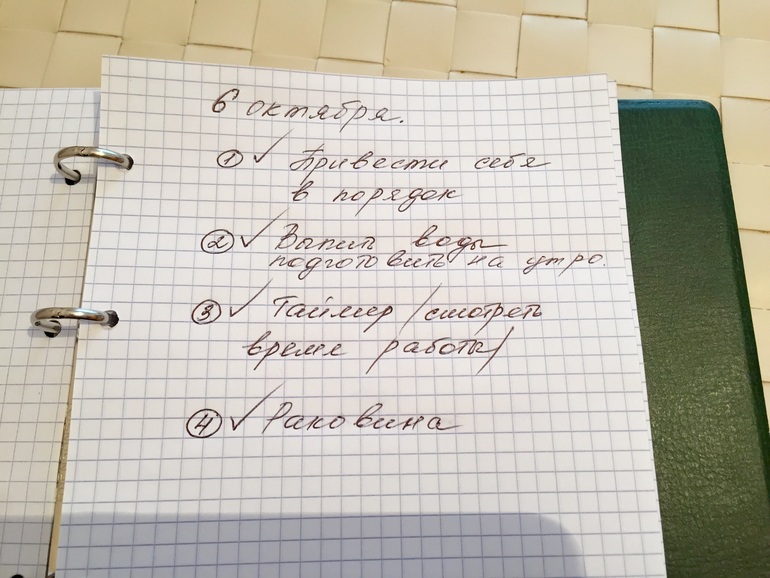 6 октября.
① ✓ Привести себя
в порядок
② ✓ Выпить воды
подготовить на утро.
③ ✓ Таймер /смотреть
время работы/
④ ✓ Раковина